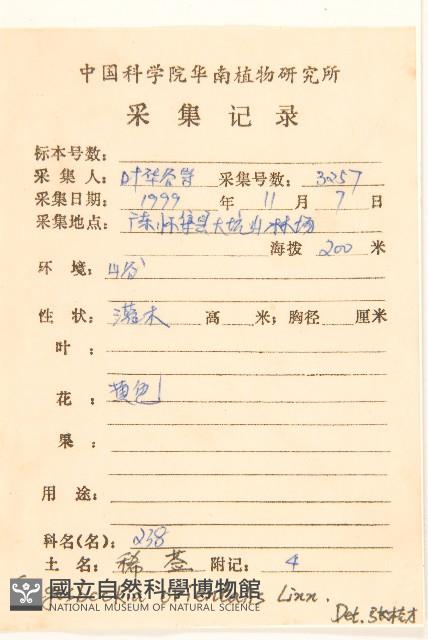 中国科学院华南植物研究所
采集记录
标本号数:
采集人: 叶华谷等 采集号数: 3257
采集日期: 1999 年 11 月 7 日
采集地点: 广东怀集县大坑山林场
海拨 200 米
环境: 山谷
性状: 灌木 高 米; 胸径 厘米
叶:
花: 黄色
果:
用途:
科名(名): 238
土名: 稀莶 附记: 4
orientalis Linn.
國立自然科學博物館
NATIONAL MUSEUM OF NATURAL SCIENCE
Det. 张桂才